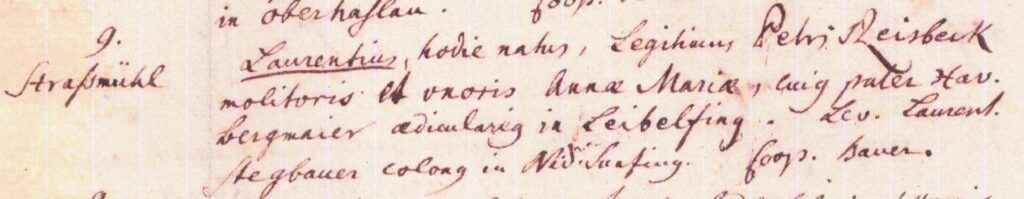 in Oberhaslau. Coop.
9. Laurentius, hodie natus, Legitimus Petri Reisbeck
Straßmühl molitoris et uxoris Annæ Mariæ, cuig pater Xav.
bergmaier ædicularig in Leibelfing. Lev. Laurent.
Stegbauer colong in Nid Sunfing. Coop. Bauer.